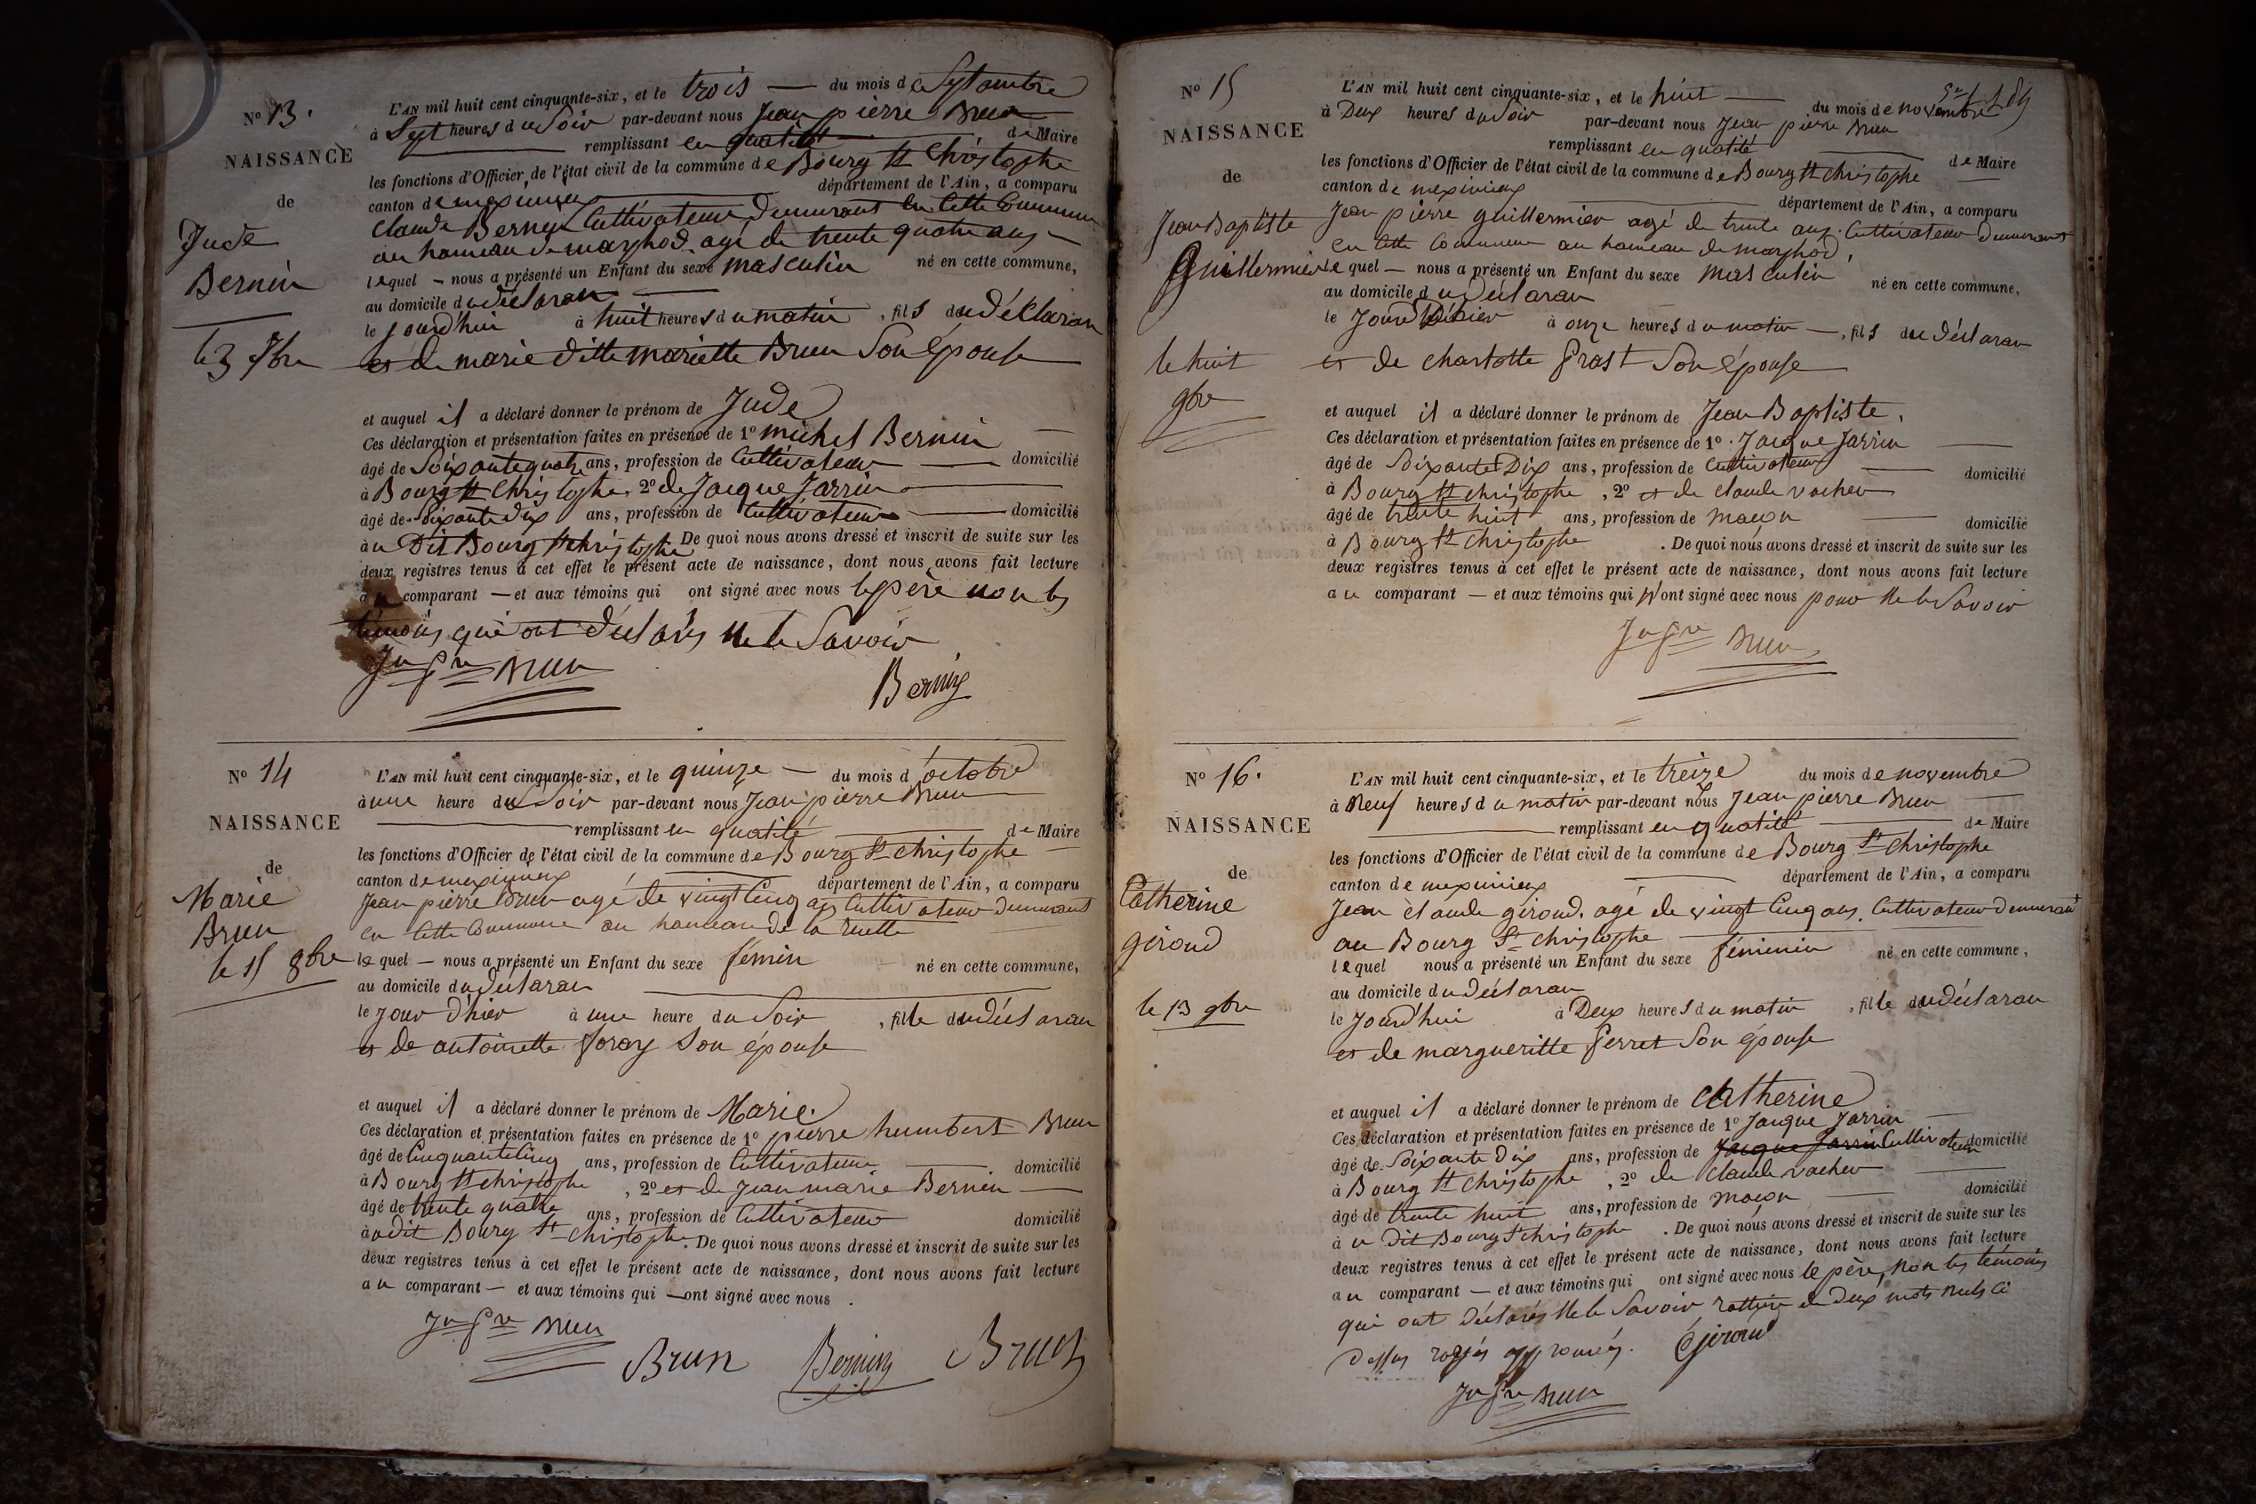 N° 13.
NAISSANCE
de
Jude
Bernin
le 3 7bre
L'AN mil huit cent cinquante-six, et le trois — du mois de Septembre
à Sept heures du Soir par-devant nous Jean pierre Brun
remplissant en qualité de Maire
les fonctions d'Officier de l'état civil de la commune de Bourg St Christophe
canton de meximieux département de l'Ain, a comparu
Claude Bernin Cultivateur Demurant en Cette Commune
au hameau de marphod. agé de trente quatre ans —
lequel — nous a présenté un Enfant du sexe masculin né en cette commune,
au domicile du déclaran
le jourd'hui à huit heures du matin, fils du déClaran
et de marie ditte mariette Brun Son épouse
et auquel il a déclaré donner le prénom de Jude
Ces déclaration et présentation faites en présence de 1° michel Bernin
âgé de Soixantequatre ans, profession de Cultivateur — domicilié
à Bourg St Christophe, 2° de Jacque Jarrin
âgé de Soixante dix ans, profession de Cultivateur — domicilié
au Dit Bourg St christophe De quoi nous avons dressé et inscrit de suite sur les
deux registres tenus à cet effet le présent acte de naissance, dont nous avons fait lecture
au comparant — et aux témoins qui ont signé avec nous le père non les
témoins qui ont déclarés ne le Savoir
Jn Pre Brun
Bernin
N° 14
NAISSANCE
de
Marie
Brun
le 15 8bre
L'AN mil huit cent cinquante-six, et le quinze — du mois d'octobre
à une heure du Soir par-devant nous Jean pierre Brun
remplissant en qualité de Maire
les fonctions d'Officier de l'état civil de la commune de Bourg St christophe
canton de meximieux département de l'Ain, a comparu
Jean pierre Brun agé de vingt Cinq ans Cultivateur Demurant
en Cette Commune au hameau de la ruette
lequel — nous a présenté un Enfant du sexe fémin né en cette commune,
au domicile du déclaran
le jour d'hier à une heure du Soir, fille du déclaran
et de antoinette foray Son épouse
et auquel il a déclaré donner le prénom de Marie.
Ces déclaration et présentation faites en présence de 1° pierre humbert Brun
âgé de Cinquante Cinq ans, profession de Cultivateur — domicilié
à Bourg St christophe, 2° et de Jean marie Bernin —
âgé de trente quatre ans, profession de Cultivateur domicilié
à udit Bourg St christophe. De quoi nous avons dressé et inscrit de suite sur les
deux registres tenus à cet effet le présent acte de naissance, dont nous avons fait lecture
au comparant — et aux témoins qui — ont signé avec nous.
Jn Pre Brun
Brun Bernin Brun
N° 15
NAISSANCE
de
Jean Baptiste
Guillermier
le huit
9bre
L'AN mil huit cent cinquante-six, et le huit — du mois de novembre
à Deux heures du Soir par-devant nous Jean pierre Brun
remplissant en qualité de Maire
les fonctions d'Officier de l'état civil de la commune de Bourg St christophe
canton de meximieux département de l'Ain, a comparu
Jean pierre guillermier agé de trente ans. Cultivateur Demurant
en Cette Commune au hameau de marphod,
lequel — nous a présenté un Enfant du sexe masculin né en cette commune,
au domicile du déclaran
le Jour D'hier à onze heures du matin —, fils du déclaran
et de charlotte Prost Son épouse
et auquel il a déclaré donner le prénom de Jean Baptiste.
Ces déclaration et présentation faites en présence de 1° Jacque Jarrin
âgé de Soixante Dix ans, profession de Cultivateur — domicilié
à Bourg St christophe, 2° et de Claude vacher
âgé de trente huit ans, profession de maçon domicilié
à Bourg St christophe. De quoi nous avons dressé et inscrit de suite sur les
deux registres tenus à cet effet le présent acte de naissance, dont nous avons fait lecture
au comparant — et aux témoins qui n'ont signé avec nous pour ne le Savoir
Jn Pre Brun
N° 16.
NAISSANCE
de
Catherine
giroud
le 13 9bre
L'AN mil huit cent cinquante-six, et le treize du mois de novembre
à Neuf heures du matin par-devant nous Jean pierre Brun
remplissant en qualité de Maire
les fonctions d'Officier de l'état civil de la commune de Bourg St christophe
canton de meximieux département de l'Ain, a comparu
Jean claude giroud, agé de vingt Cinq ans. Cultivateur Demurant
au Bourg St christophe
lequel nous a présenté un Enfant du sexe féminin né en cette commune,
au domicile du déclaran
le Jourd'hui à Deux heures du matin, fille du déclaran
et de margueritte ferret Son épouse
et auquel il a déclaré donner le prénom de Catherine
Ces déclaration et présentation faites en présence de 1° Jacque Jarrin
âgé de Soixante dix ans, profession de Jacque Jarrin Cultivateur domicilié
à Bourg St christophe, 2° de Claude vacher
âgé de trente huit ans, profession de maçon domicilié
à u Dit Bourg St christophe. De quoi nous avons dressé et inscrit de suite sur les
deux registres tenus à cet effet le présent acte de naissance, dont nous avons fait lecture
au comparant — et aux témoins qui ont signé avec nous le père, non les témoins
qui ont déclarés ne le Savoir de deux mots nuls Ci
Dessus rayés approuvés. Giroud
Jn Pre Brun